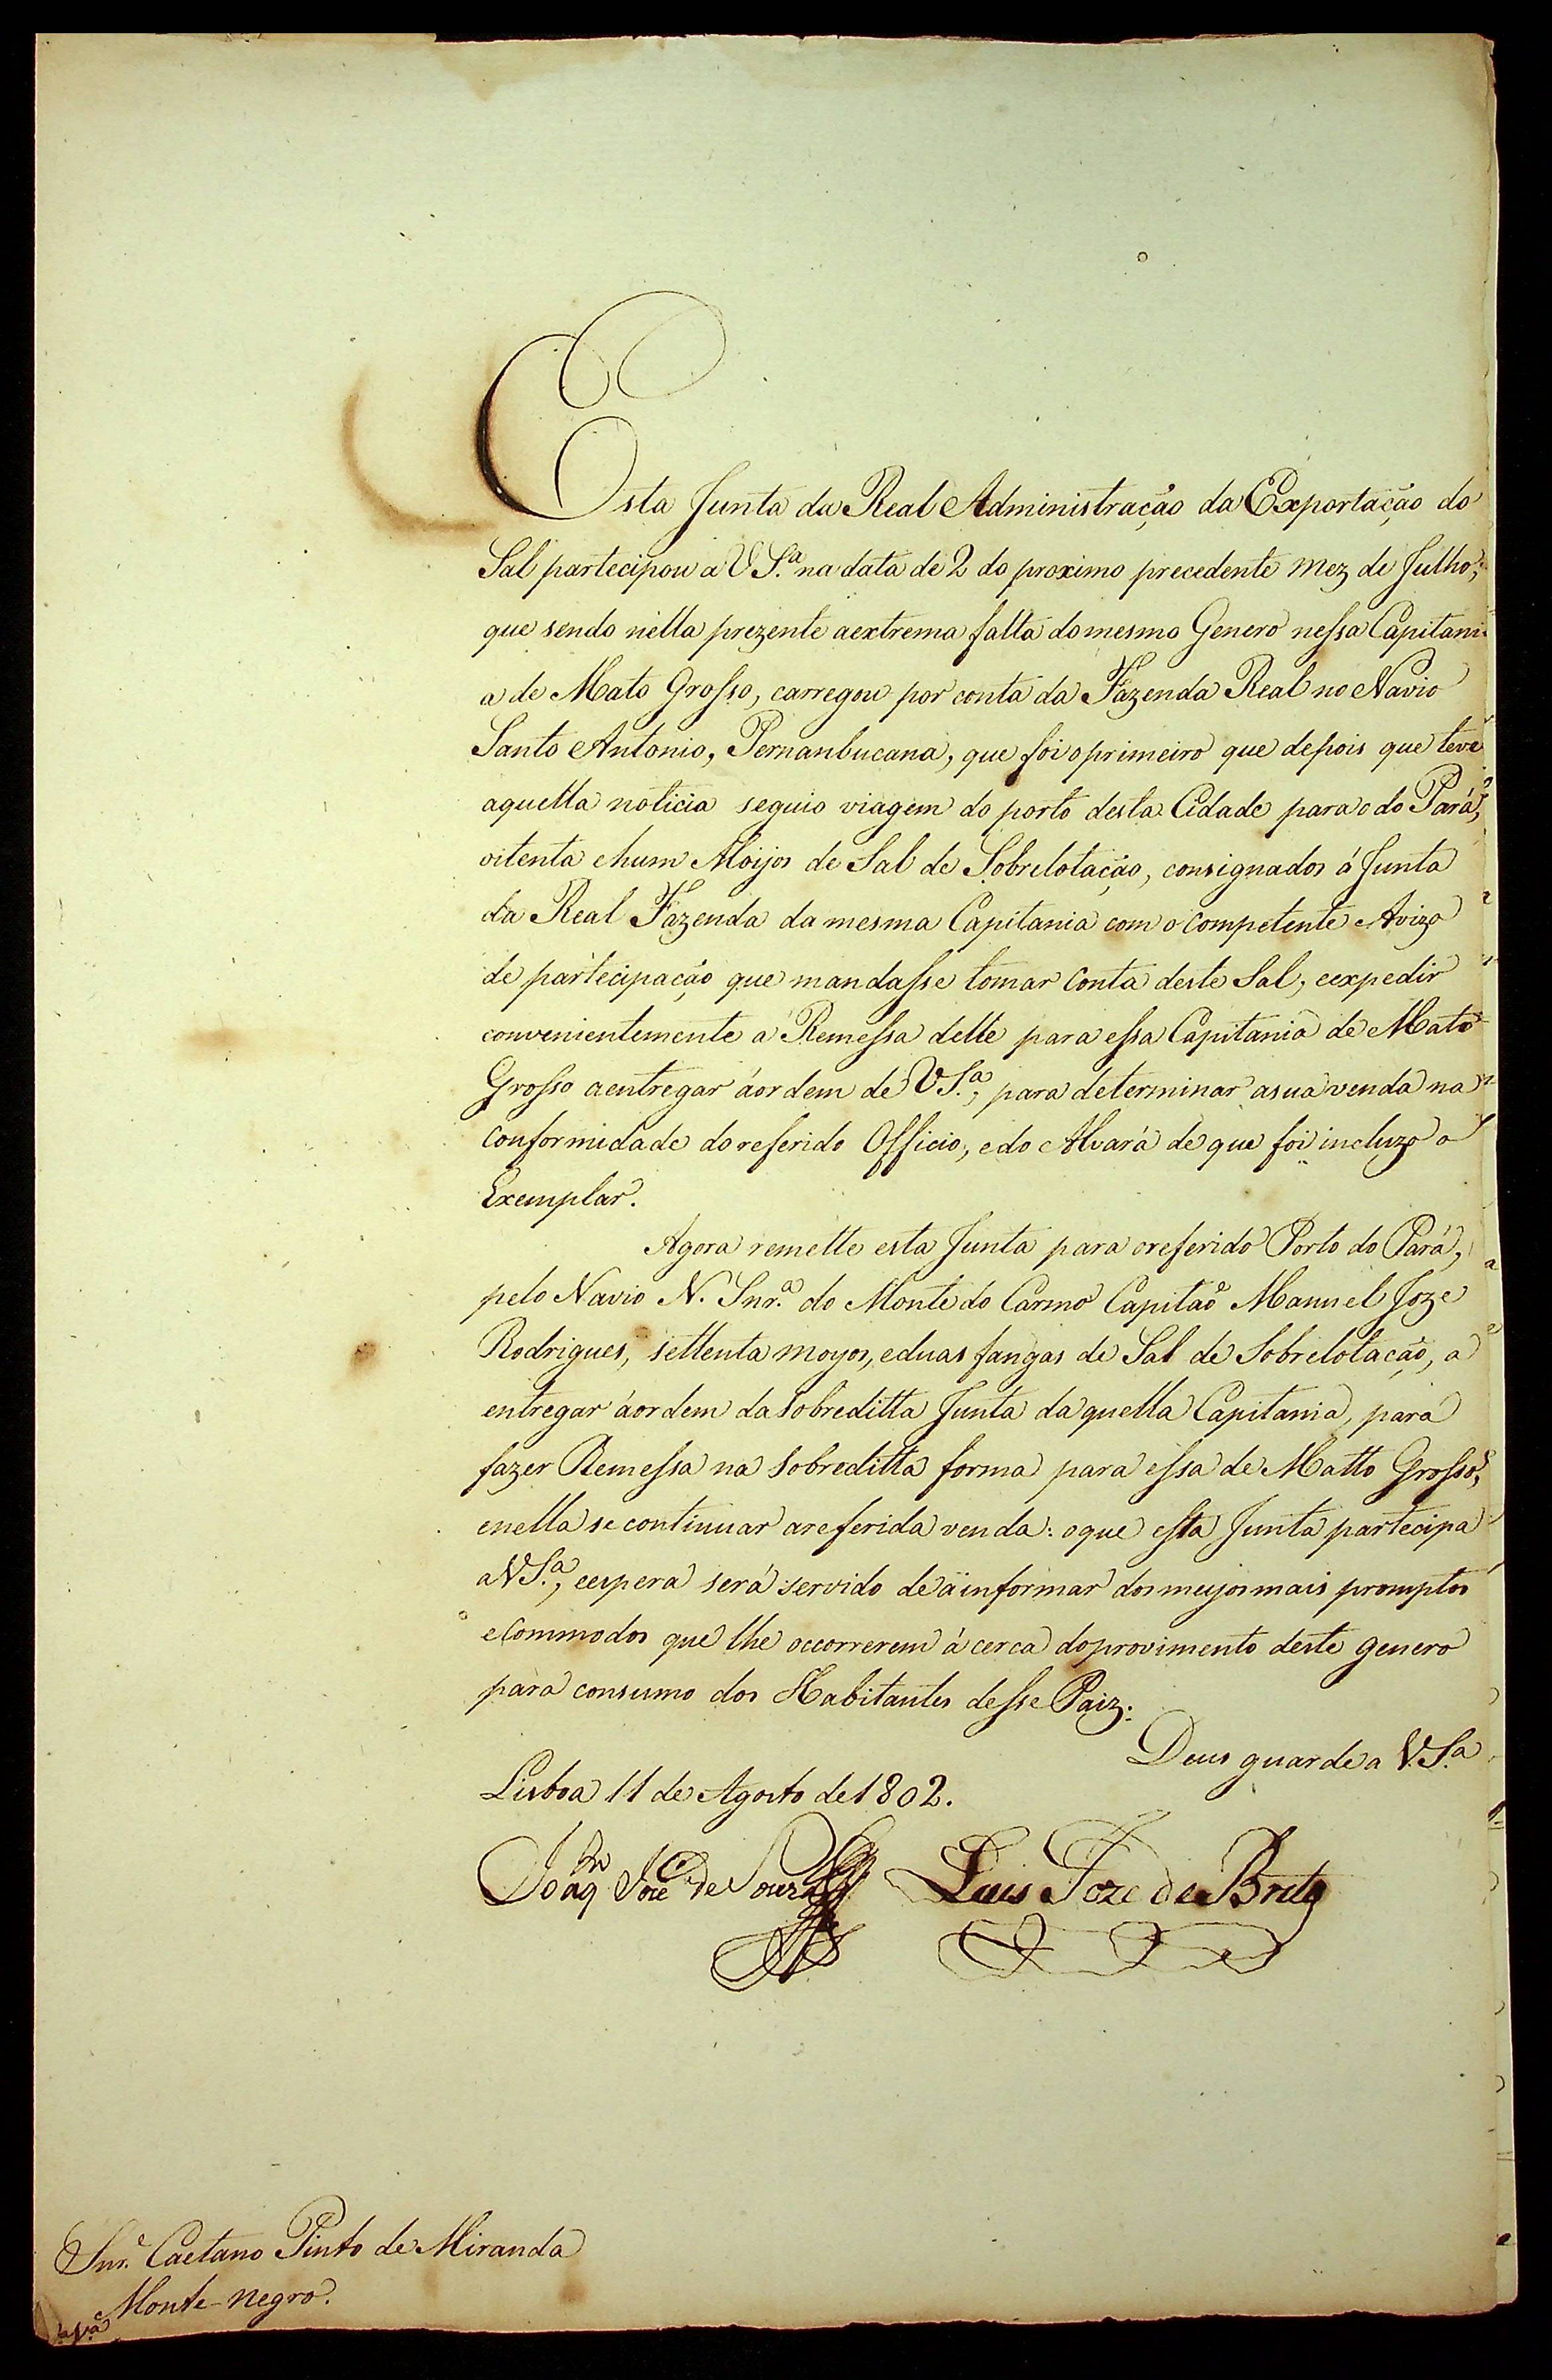 Esta Junta da Real Administração da Exportação do
Sal partecipou a V S.ª na data de 2 do proximo precedente mez de Julho,
que sendo nella prezente a extrema falta do mesmo Genero nessa Capitani-
a de Mato Grosso, carregou por conta da Fazenda Real no Navio
Santo Antonio, Pernanbucana, que foi o primeiro que depois que teve
aquella noticia seguio viagem do porto desta Cidade para o do Pará,
oitenta e hum Moijos de Sal de Sobrelotação, consignados á Junta
da Real Fazenda da mesma Capitania com o competente Avizo
de partecipação que mandasse tomar conta deste Sal, e expedir
convenientemente a Remessa delle para essa Capitania de Mato
Grosso a entregar á ordem de V S.ª, para determinar a sua venda na
conformidade do referido Officio, e do Alvará de que foi incluzo o
Exemplar.
Agora remette esta Junta para o referido Porto do Pará,
pelo Navio N. Snr.ª do Monte do Carmo Capitaõ Manuel Joze
Rodrigues, settenta moyos, e duas fangas de Sal de Sobrelotação, a
entregar á ordem da sobreditta Junta daquella Capitania, para
fazer Remessa na sobreditta forma para essa de Matto Grosso,
e nella se continuar a referida venda: o que esta Junta partecipa
a V S.ª, e espera será servido de a informar dos meyos mais promptos
e commodos que lhe occorrerem á cerca do provimento deste genero
para consumo dos Habitantes desse Paiz.
Deus guarde a V. S.ª
Lisboa 11 de Agosto de 1802.
Joaq.m Joze de Souza Luis Joze de Brito
Snr. Caetano Pinto de Miranda
Monte-negro.